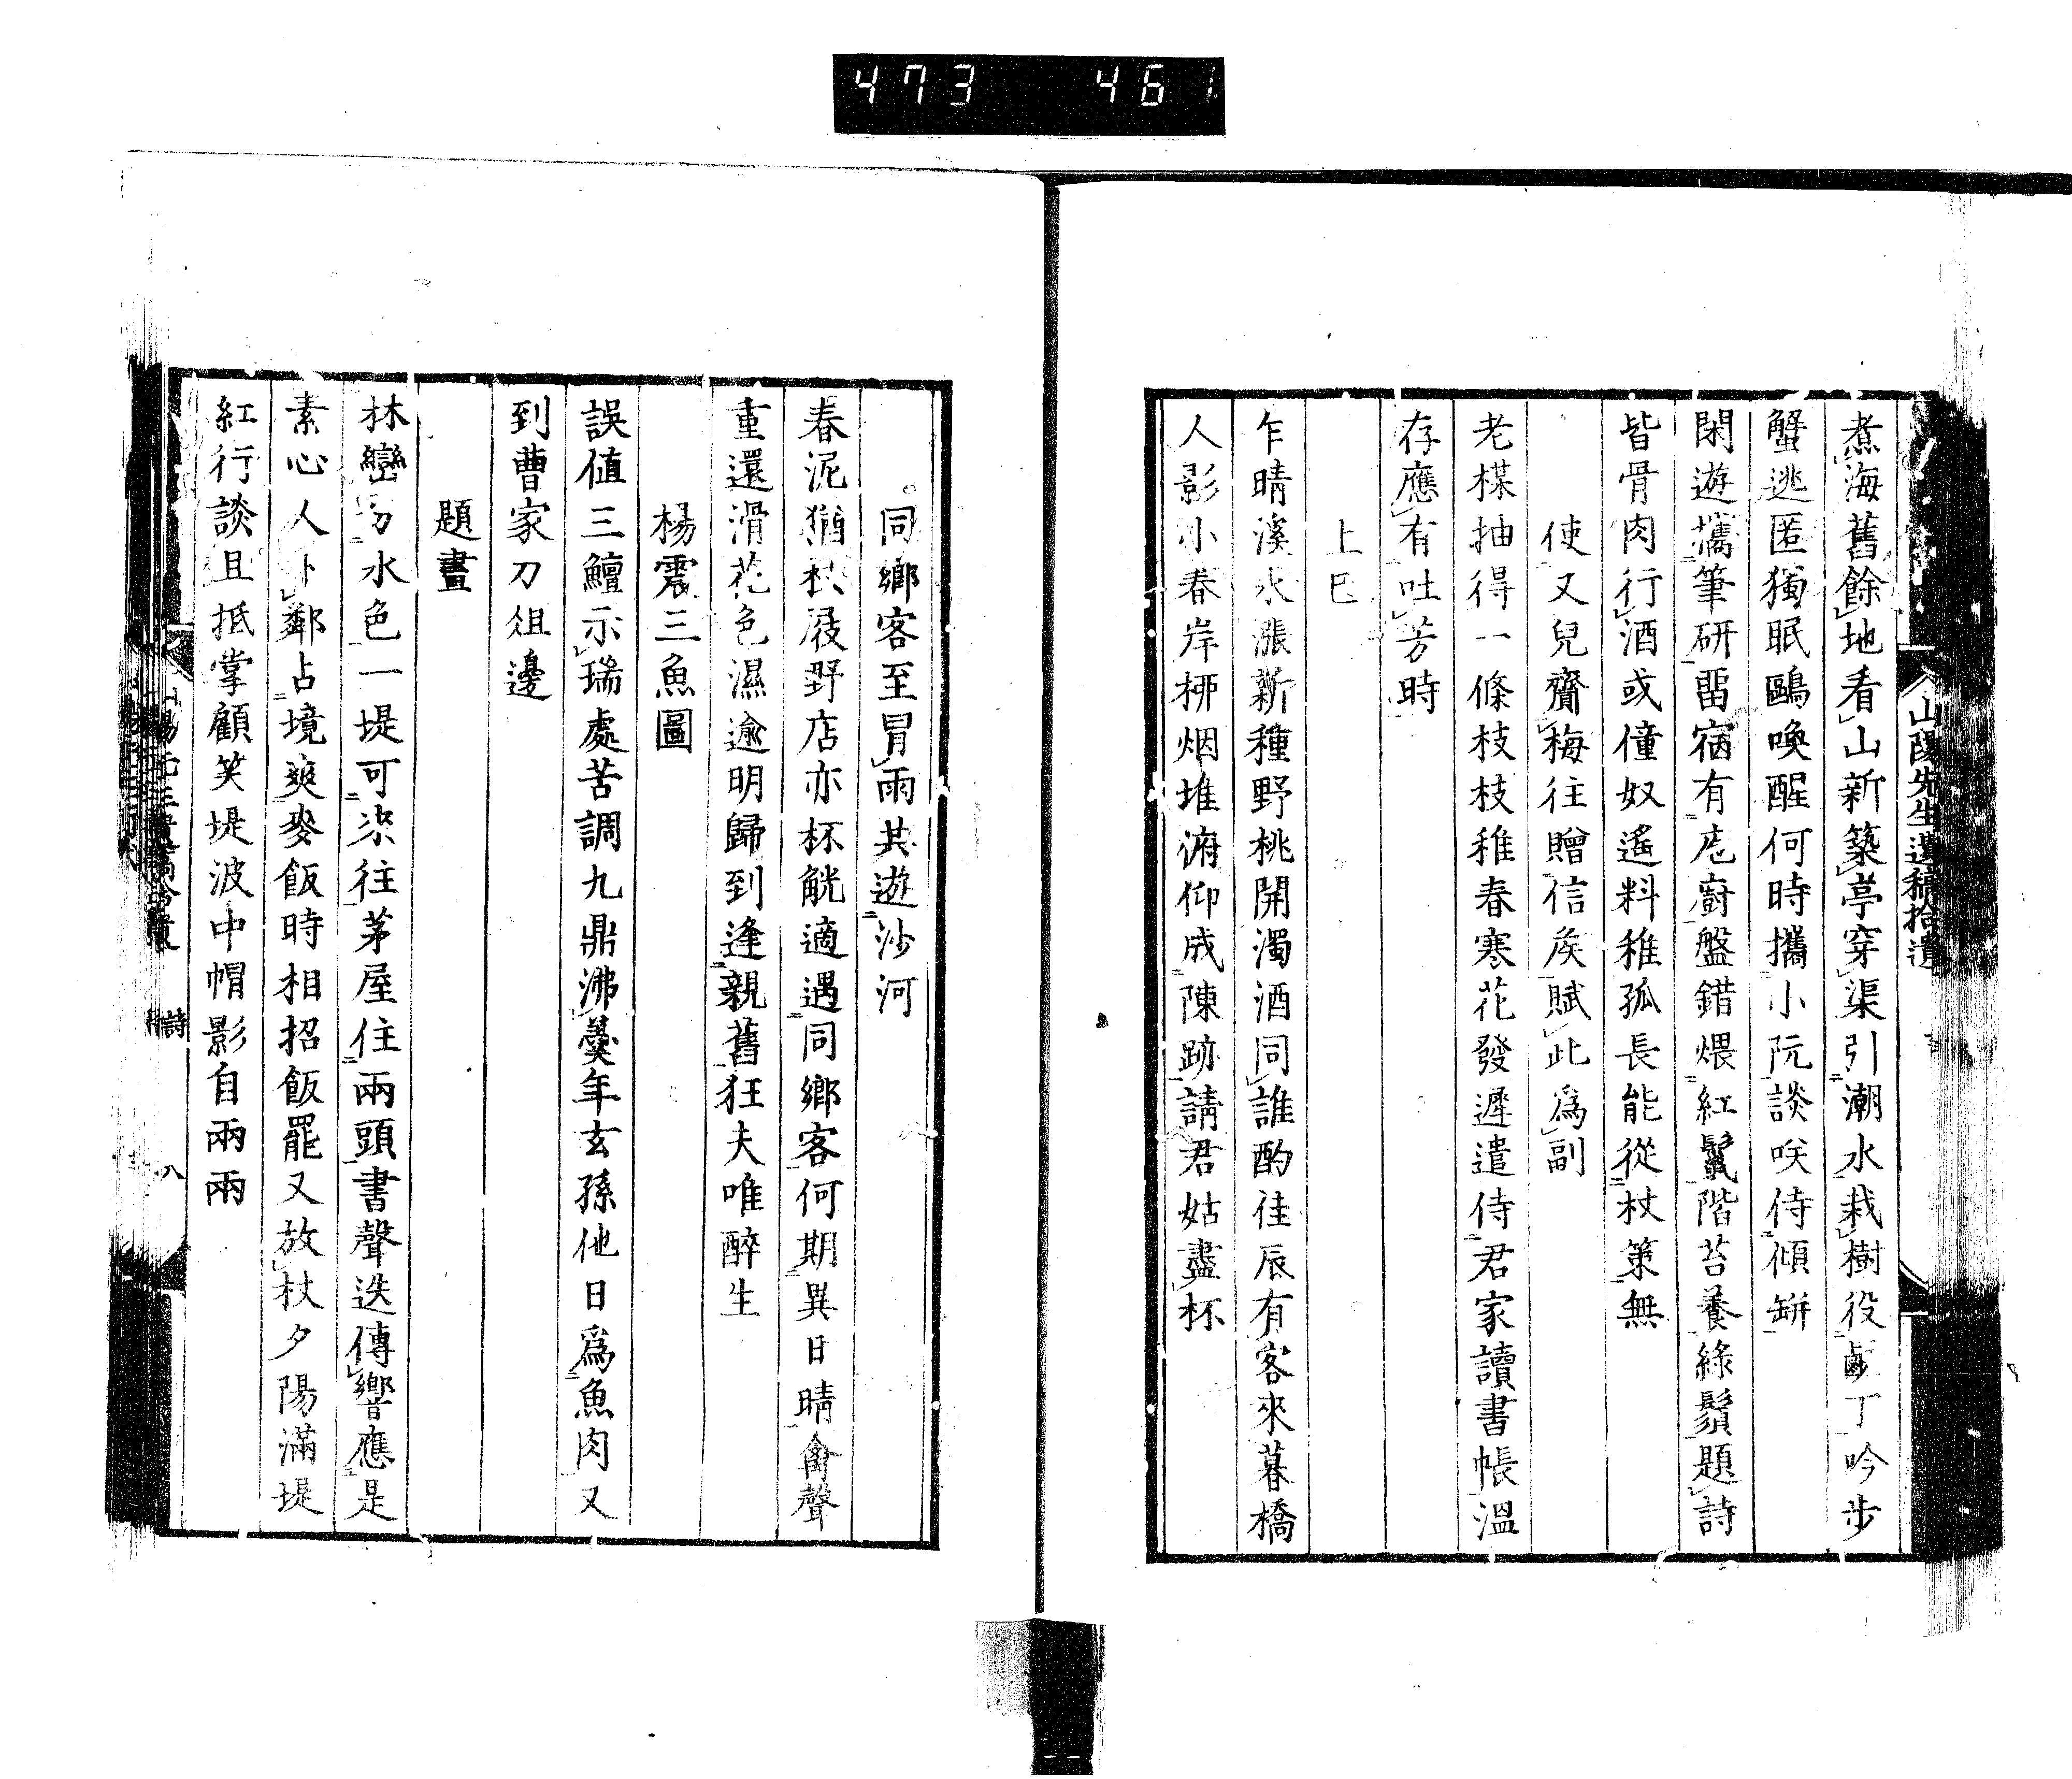 473 461
山陽先生遺稿拾遺
煮海舊餘地看山新築亭穿渠引潮水栽樹役鹵丁吟步
蟹逃匿獨眠鷗喚醒何時攜小阮談咲侍傾缾
閑遊攜筆研畱宿有庖廚盤錯煨紅鬣階苔養綠鬚題詩
皆骨肉行酒或僮奴遙料稚孤長能從杖策無
使又兒齎梅往贈信矦賦此爲副
老楳抽得一條枝枝稚春寒花發遲遣侍君家讀書帳溫
存應有吐芳時
上巳
乍晴溪水漲新種野桃開濁酒同誰酌佳辰有客來暮橋
人影小春岸桺烟堆俯仰成陳跡請君姑盡杯
同鄉客至冒雨共遊沙河
春泥猶杖屐野店亦杯觥適遇同鄉客何期異日晴禽聲
重還滑花色濕逾明歸到逢親舊狂夫唯醉生
楊震三魚圖
誤値三鱣示瑞處苦調九鼎沸羹年玄孫他日爲魚肉又
到曹家刀俎邊
題畫
林巒分水色一堤可來往茅屋住兩頭書聲迭傳響應是
素心人卜鄰占境爽麥飯時相招飯罷又放杖夕陽滿堤
紅行談且抵掌顧笑堤波中帽影自兩兩
詩
八